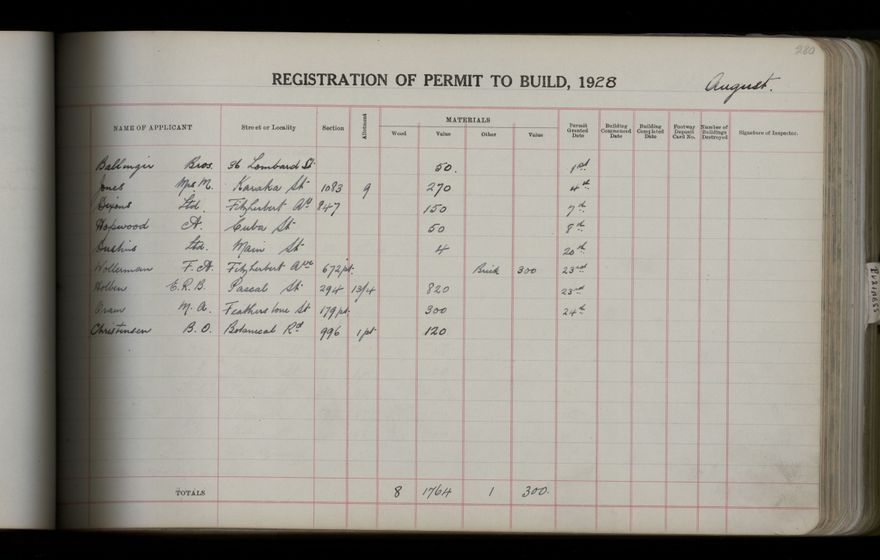 280
REGISTRATION OF PERMIT TO BUILD, 1928 August.
NAME OF APPLICANT Street or Locality Section Allotment MATERIALS Wood Value Other Value Permit Granted Date Building Commenced Date Building Completed Date Footway Deposit Card No. Number of Buildings Destroyed Signature of Inspector.
Ballinger Bros. 36 Lombard St. 50. 1st
Jones Mrs M. Karaka St 1083 9 270 4th
Dixons Ltd. Fitzherbert Av 847 150 7th
Hopwood A. Cuba St 50 8th
Dustins Ltd. Main St 4 20th
Wollerman F. A. Fitzherbert Ave 672 pt. Brick 300 23rd
Holben E. R. B. Pascal St 294 13/4 820 23rd
Oram M. A. Featherstone St 179 pt. 300 24th
Christensen B. O. Botanical Rd 996 1 pt 120
TOTALS 8 1764 1 300.